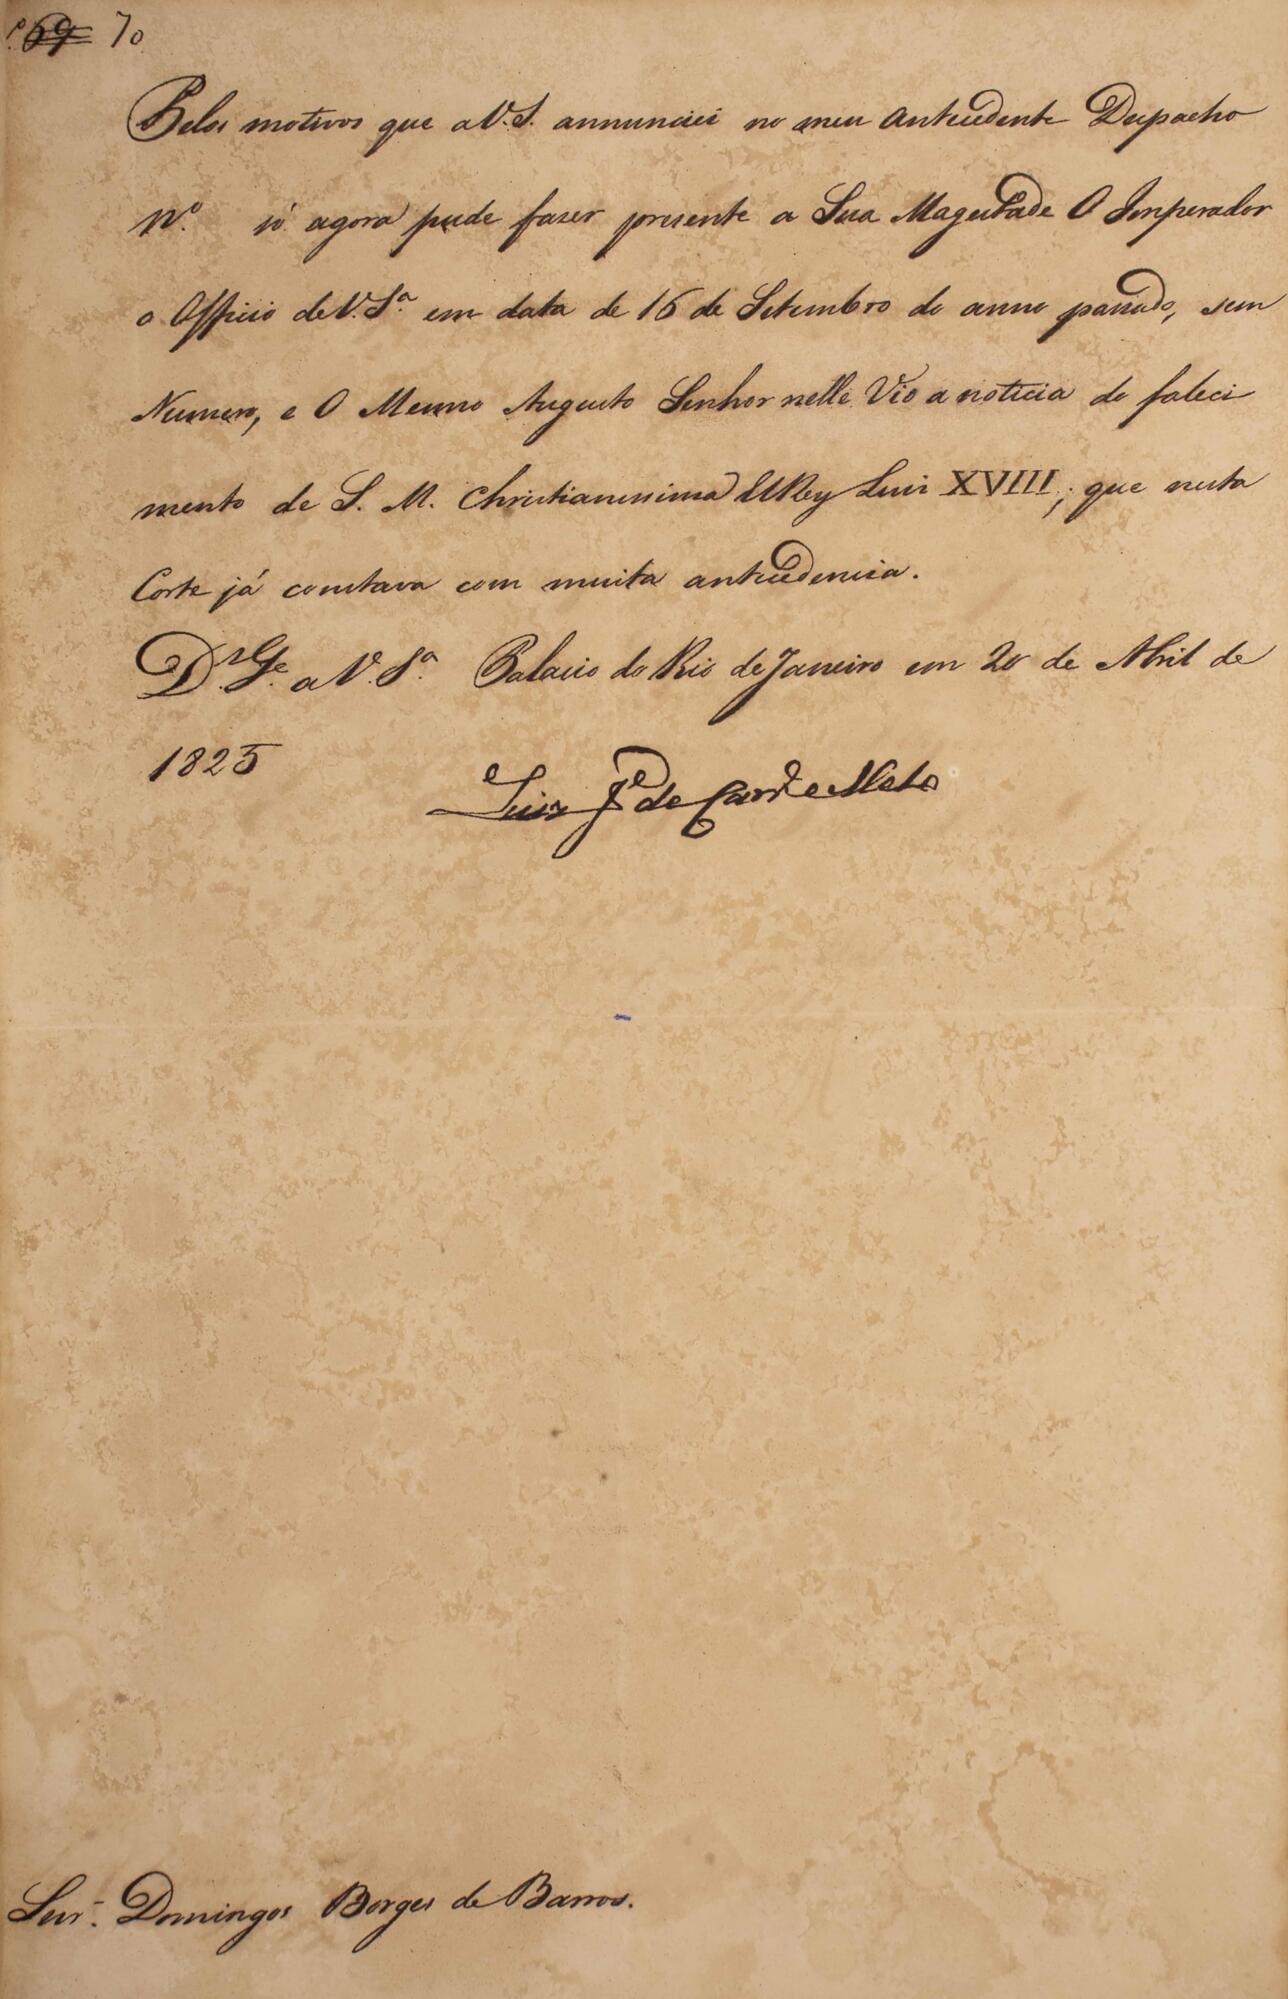 69 70
Pelos motivos que a V. S. annunciei no meu antecedente Despacho
N.º só agora pude faser presente a Sua Magestade O Imperador
o Officio de V. S.ª em data de 16 de Setembro do anno passado, sem
Numero, e O Mesmo Augusto Senhor nelle Vio a noticia do faleci
mento de S. M. Christianissima ElRey Luis XVIII, que nesta
Corte já constava com muita antecedencia.
D.s G.e a V. S.ª Palacio do Rio de Janeiro em 20 de Abril de
1825
Luiz J.e de Carv.o e Mello
Snr. Domingos Borges de Barros.